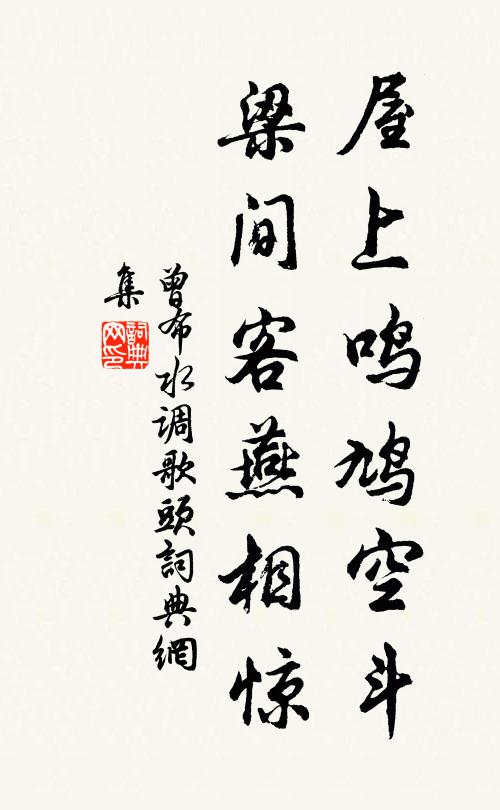 屋上鸣鸠空斗
梁间客燕相惊
曾布水调歌头词典网
集
詞典
网印